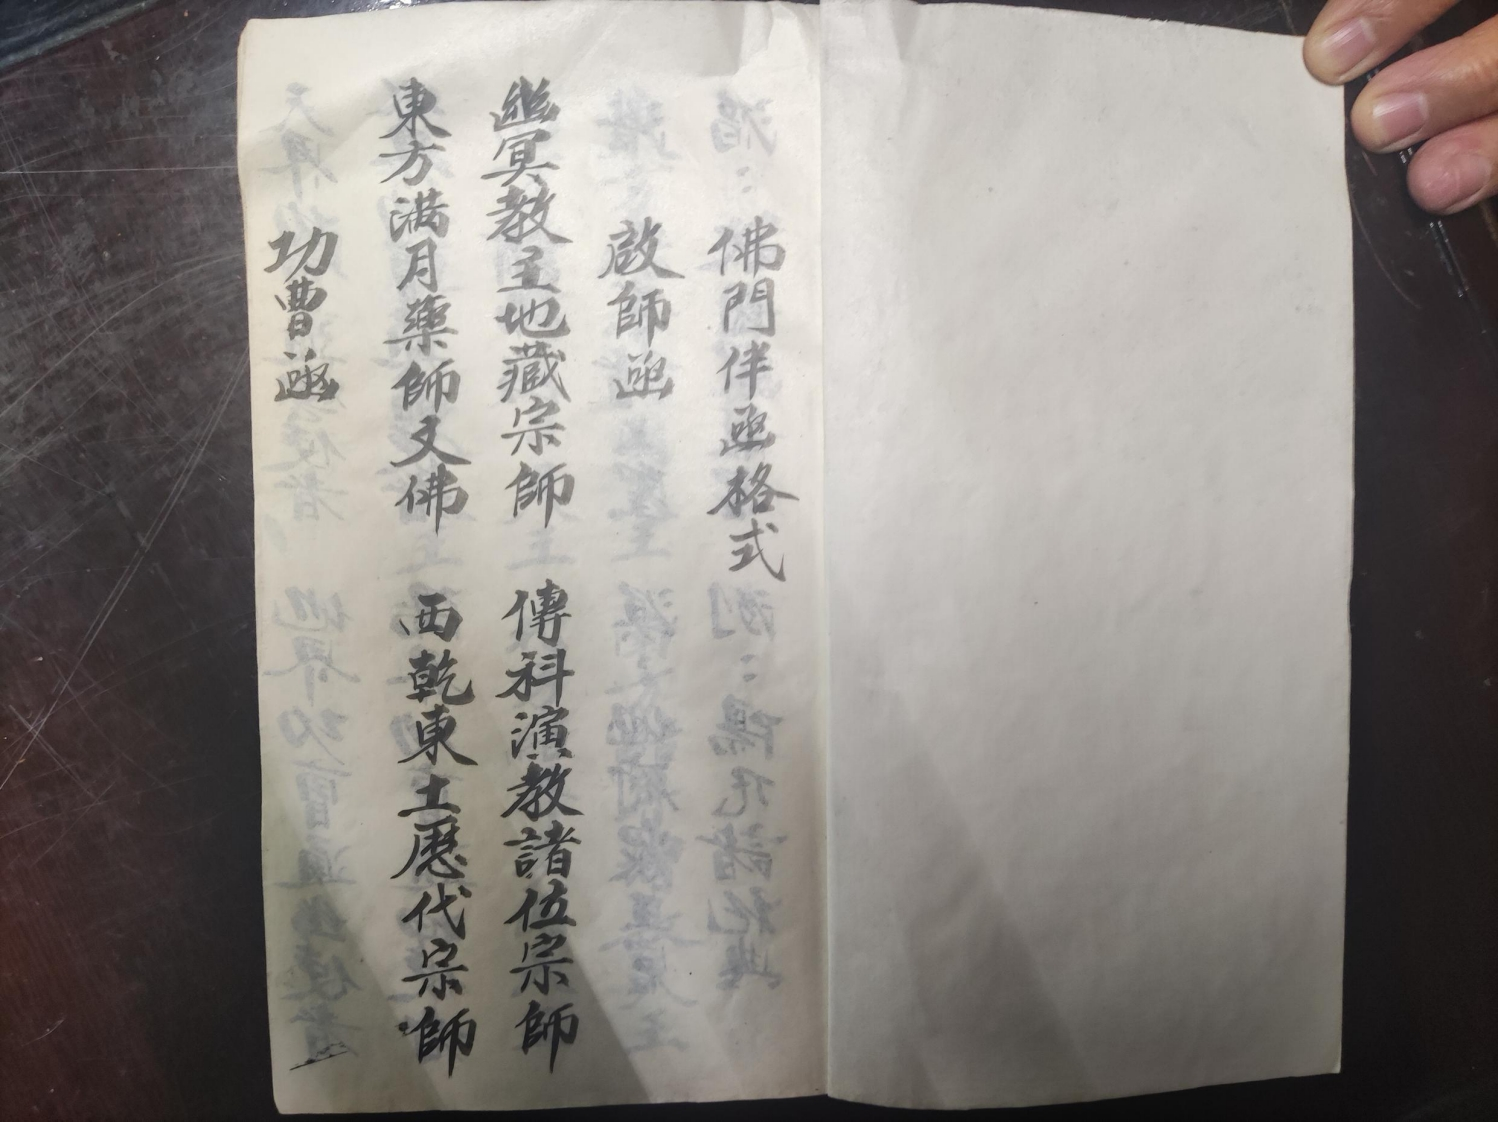 佛門伴函格式
啟師函
幽冥教主地藏宗師　傳科演教諸位宗師
東方满月藥師文佛　西乾東土歷代宗師
功曹函